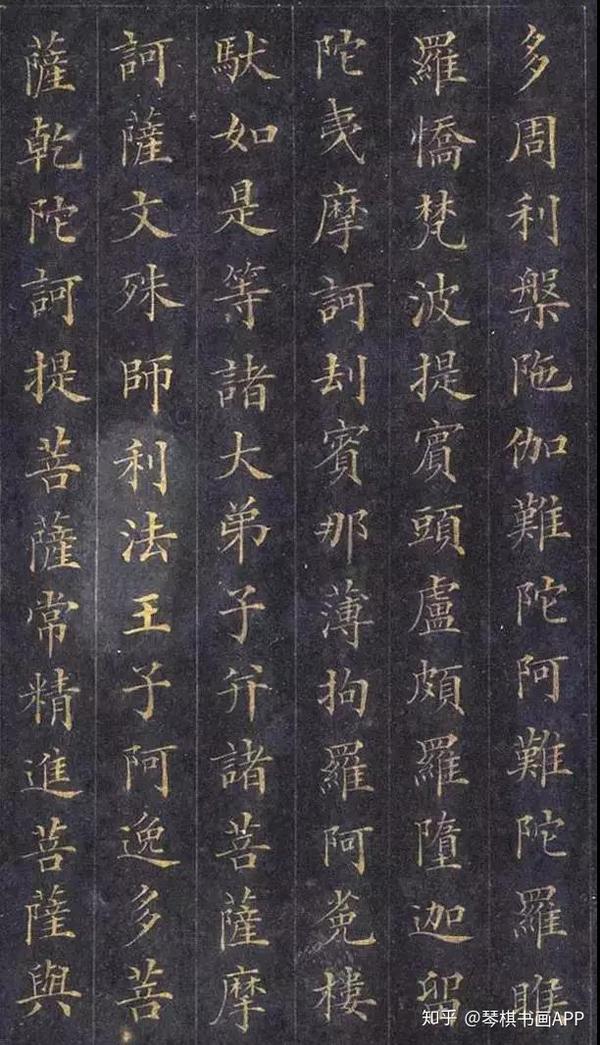 多周利槃陁伽難陀阿難陀羅睺
羅憍梵波提賓頭盧頗羅墮迦留
陀夷摩訶刦賓那薄拘羅阿㝹樓
馱如是等諸大弟子并諸菩薩摩
訶薩文殊師利法王子阿逸多菩
薩乾陀訶提菩薩常精進菩薩與
知乎 @琴棋书画APP